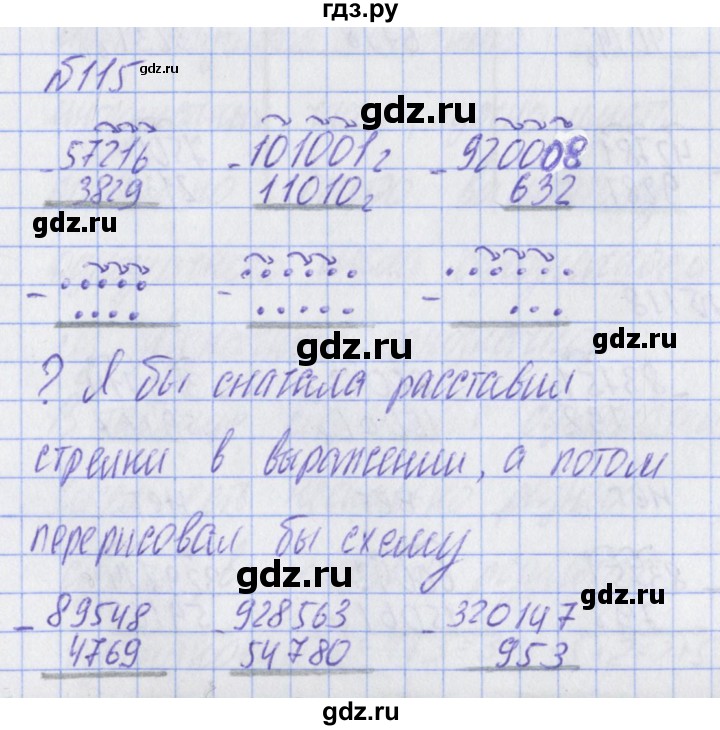 гдз.ру
№115 gdz.ru
gdz.ru
gdz.ru
- 57216 - 101001₂ - 920008
3829 11010₂ 632
gdz.ru
gdz.ru
- - -
gdz.ru
? Я бы сначала расставил
gdz.ru
стрелки в выражении, а потом
перерисовал бы схему
gdz.ru
gdz.ru
- 89548 - 928563 - 320147
4769 54780 953
gdz.ru
gdz.ru